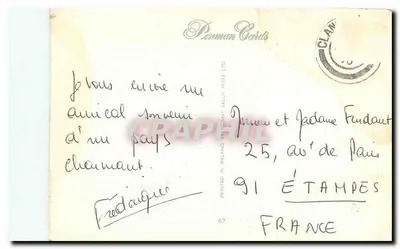 Penman Cards
CLAN
Je vous envoie un
amical souvenir
d'un pays
charmant.
Frédérique
Monsieur et Madame
25, av. de Paris
91 ÉTAMPES
FRANCE
PRINTED IN IRELAND
67
CARPHIL